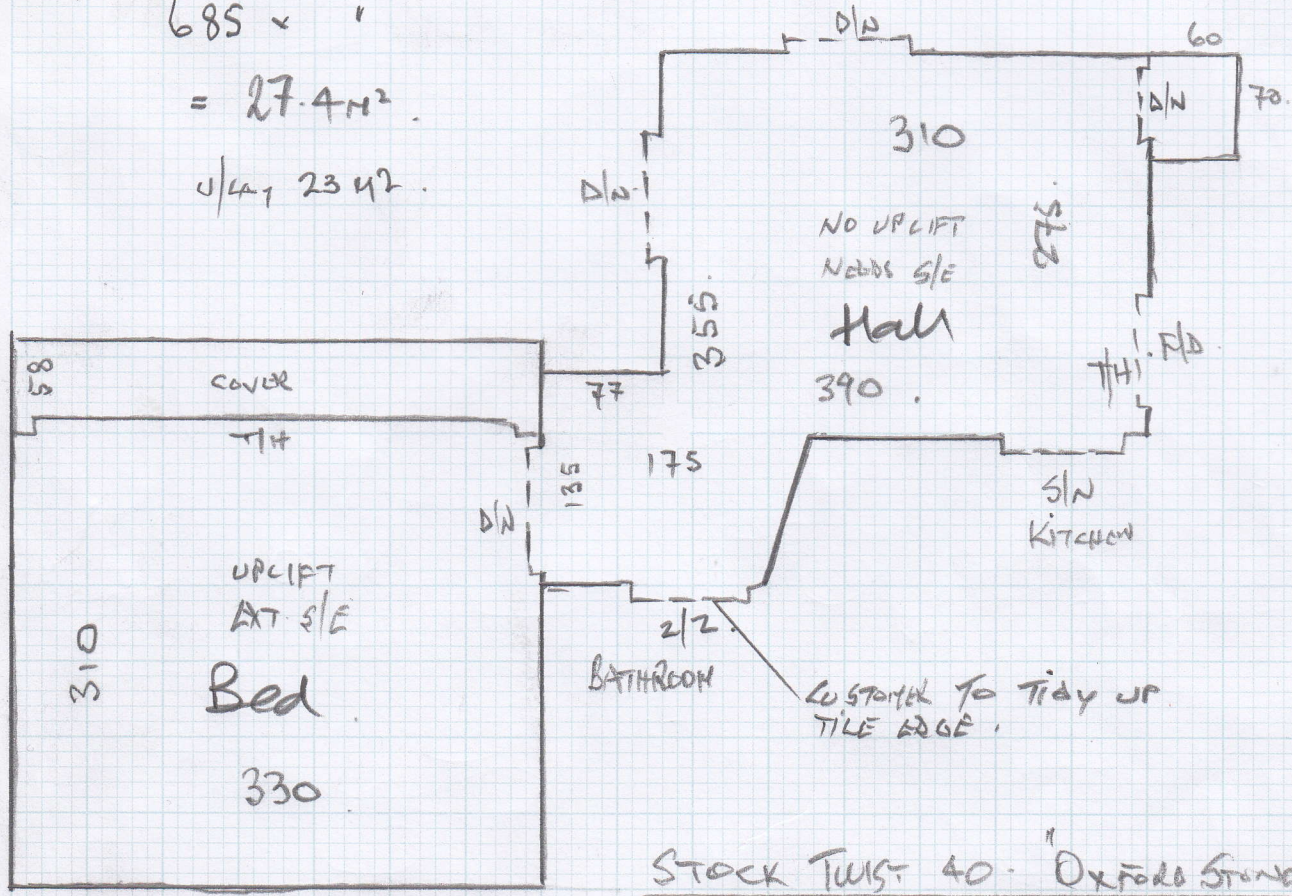 685 x "
= 27.4 M²
U/LAY 23 M².
D/N
60
D/N
70.
310
D/N
NO UPLIFT
NEEDS S/E
275.
Hall
355.
58
COVER
77
390.
T/H
F/D
T/H
175
135
D/N
S/N
KITCHEN
UPLIFT
EXT S/E
310
Bed
2/2.
BATHROOM
CUSTOMER TO TIDY UP
TILE EDGE.
330
STOCK TWIST 40. "OXFORD STONE